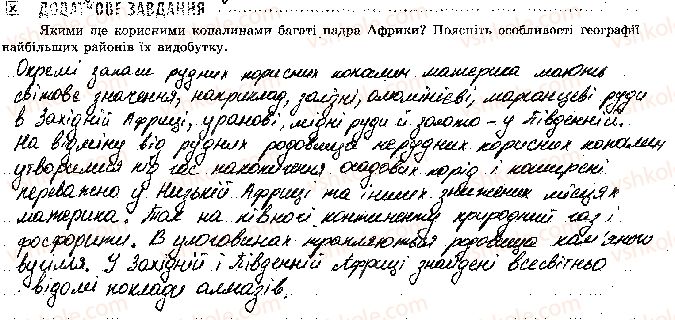 ДОДАТКОВЕ ЗАВДАННЯ
Якими ще корисними копалинами багаті надра Африки? Поясніть особливості географії
найбільших районів їх видобутку.
Окремі запаси рудних корисних копалин материка мають
світове значення, наприклад, залізні, алюмінієві, марганцеві руди
в Західній Африці, уранові, мідні руди й золото – у Південній.
На відміну від рудних родовища нерудних корисних копалин
утворилися під час накопичення осадових порід і поширені
переважно у Низькій Африці та інших знижених місцях
материка. Так на півночі континенту природний газ і
фосфорити. В улоговинах трапляються родовища кам'яного
вугілля. У Західній і Південній Африці знайдені всесвітньо
відомі поклади алмазів.